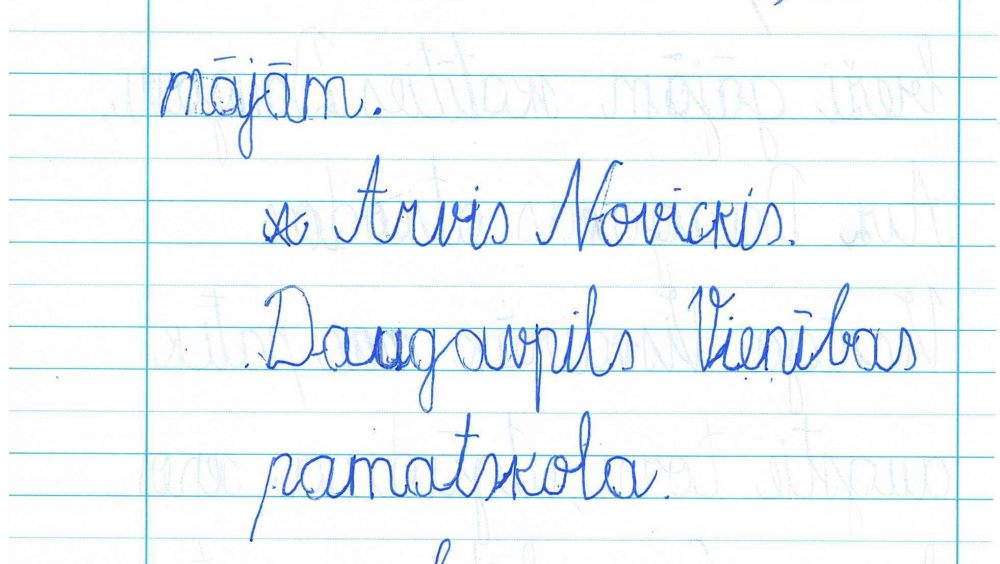 mājām.
Arvis Novickis.
Daugavpils Vienības
pamatskola.